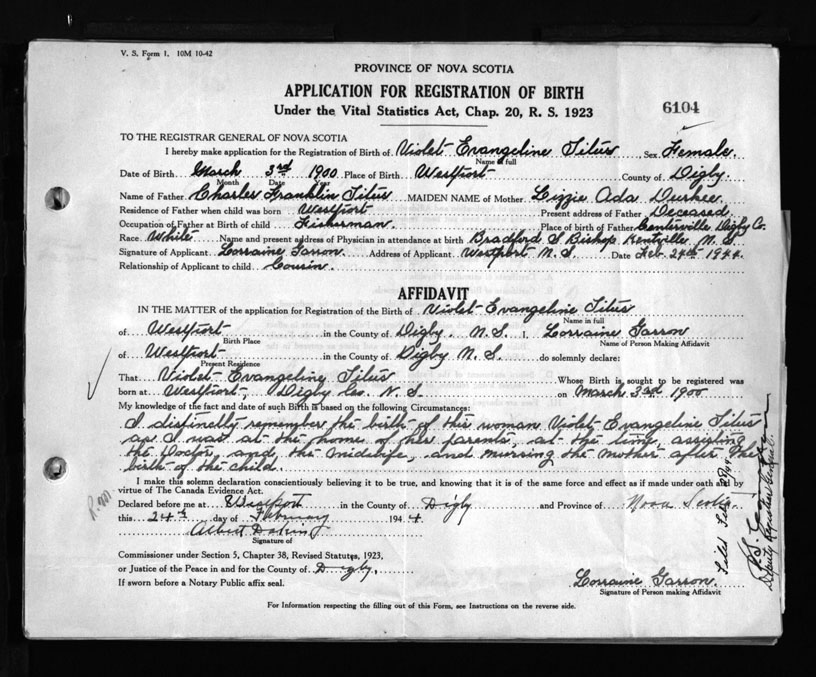 V. S. Form 1. 10M 10-42
PROVINCE OF NOVA SCOTIA
APPLICATION FOR REGISTRATION OF BIRTH
Under the Vital Statistics Act, Chap. 20, R. S. 1923
6104
TO THE REGISTRAR GENERAL OF NOVA SCOTIA
I hereby make application for the Registration of Birth of Violet Evangeline Titus, Sex Female.
Name in full
Date of Birth March 3rd 1900 Place of Birth Westport County of Digby.
Month Date Year
Name of Father Charles Franklin Titus MAIDEN NAME of Mother Lizzie Ada Durkee
Residence of Father when child was born Westport Present address of Father Deceased
Occupation of Father at Birth of child Fisherman. Place of birth of Father Centerville Digby Co.
Race White Name and present address of Physician in attendance at birth Bradford S Bishop Kentville N. S.
Signature of Applicant Lorraine Garron Address of Applicant Westport N. S. Date Feb. 24th 1944.
Relationship of Applicant to child Cousin.
AFFIDAVIT
IN THE MATTER of the application for Registration of the Birth of Violet Evangeline Titus
Name in full
of Westport in the County of Digby. N. S. I, Lorraine Garron
Birth Place Name of Person Making Affidavit
of Westport in the County of Digby N. S. do solemnly declare:
Present Residence
That Violet Evangeline Titus Whose Birth is sought to be registered was
born at Westport, Digby Co. N. S. on March 3rd 1900
My knowledge of the fact and date of such Birth is based on the following Circumstances:
I distinctly remember the birth of this woman Violet Evangeline Titus
as I was at the home of her parents, at the time, assisting
the Doctor, and the midwife, and nursing the mother after the
birth of the child.
I make this solemn declaration conscientiously believing it to be true, and knowing that it is of the same force and effect as if made under oath and by
virtue of The Canada Evidence Act.
Declared before me at Westport in the County of Digby and Province of Nova Scotia
this 24th day of February 1944
Albert Dakin
Signature of
Commissioner under Section 5, Chapter 38, Revised Statutes, 1923,
or Justice of the Peace in and for the County of Digby.
If sworn before a Notary Public affix seal.
Lorraine Garron.
Signature of Person making Affidavit
For Information respecting the filling out of this Form, see Instructions on the reverse side.
Filed Feb
Deputy Registrar General.